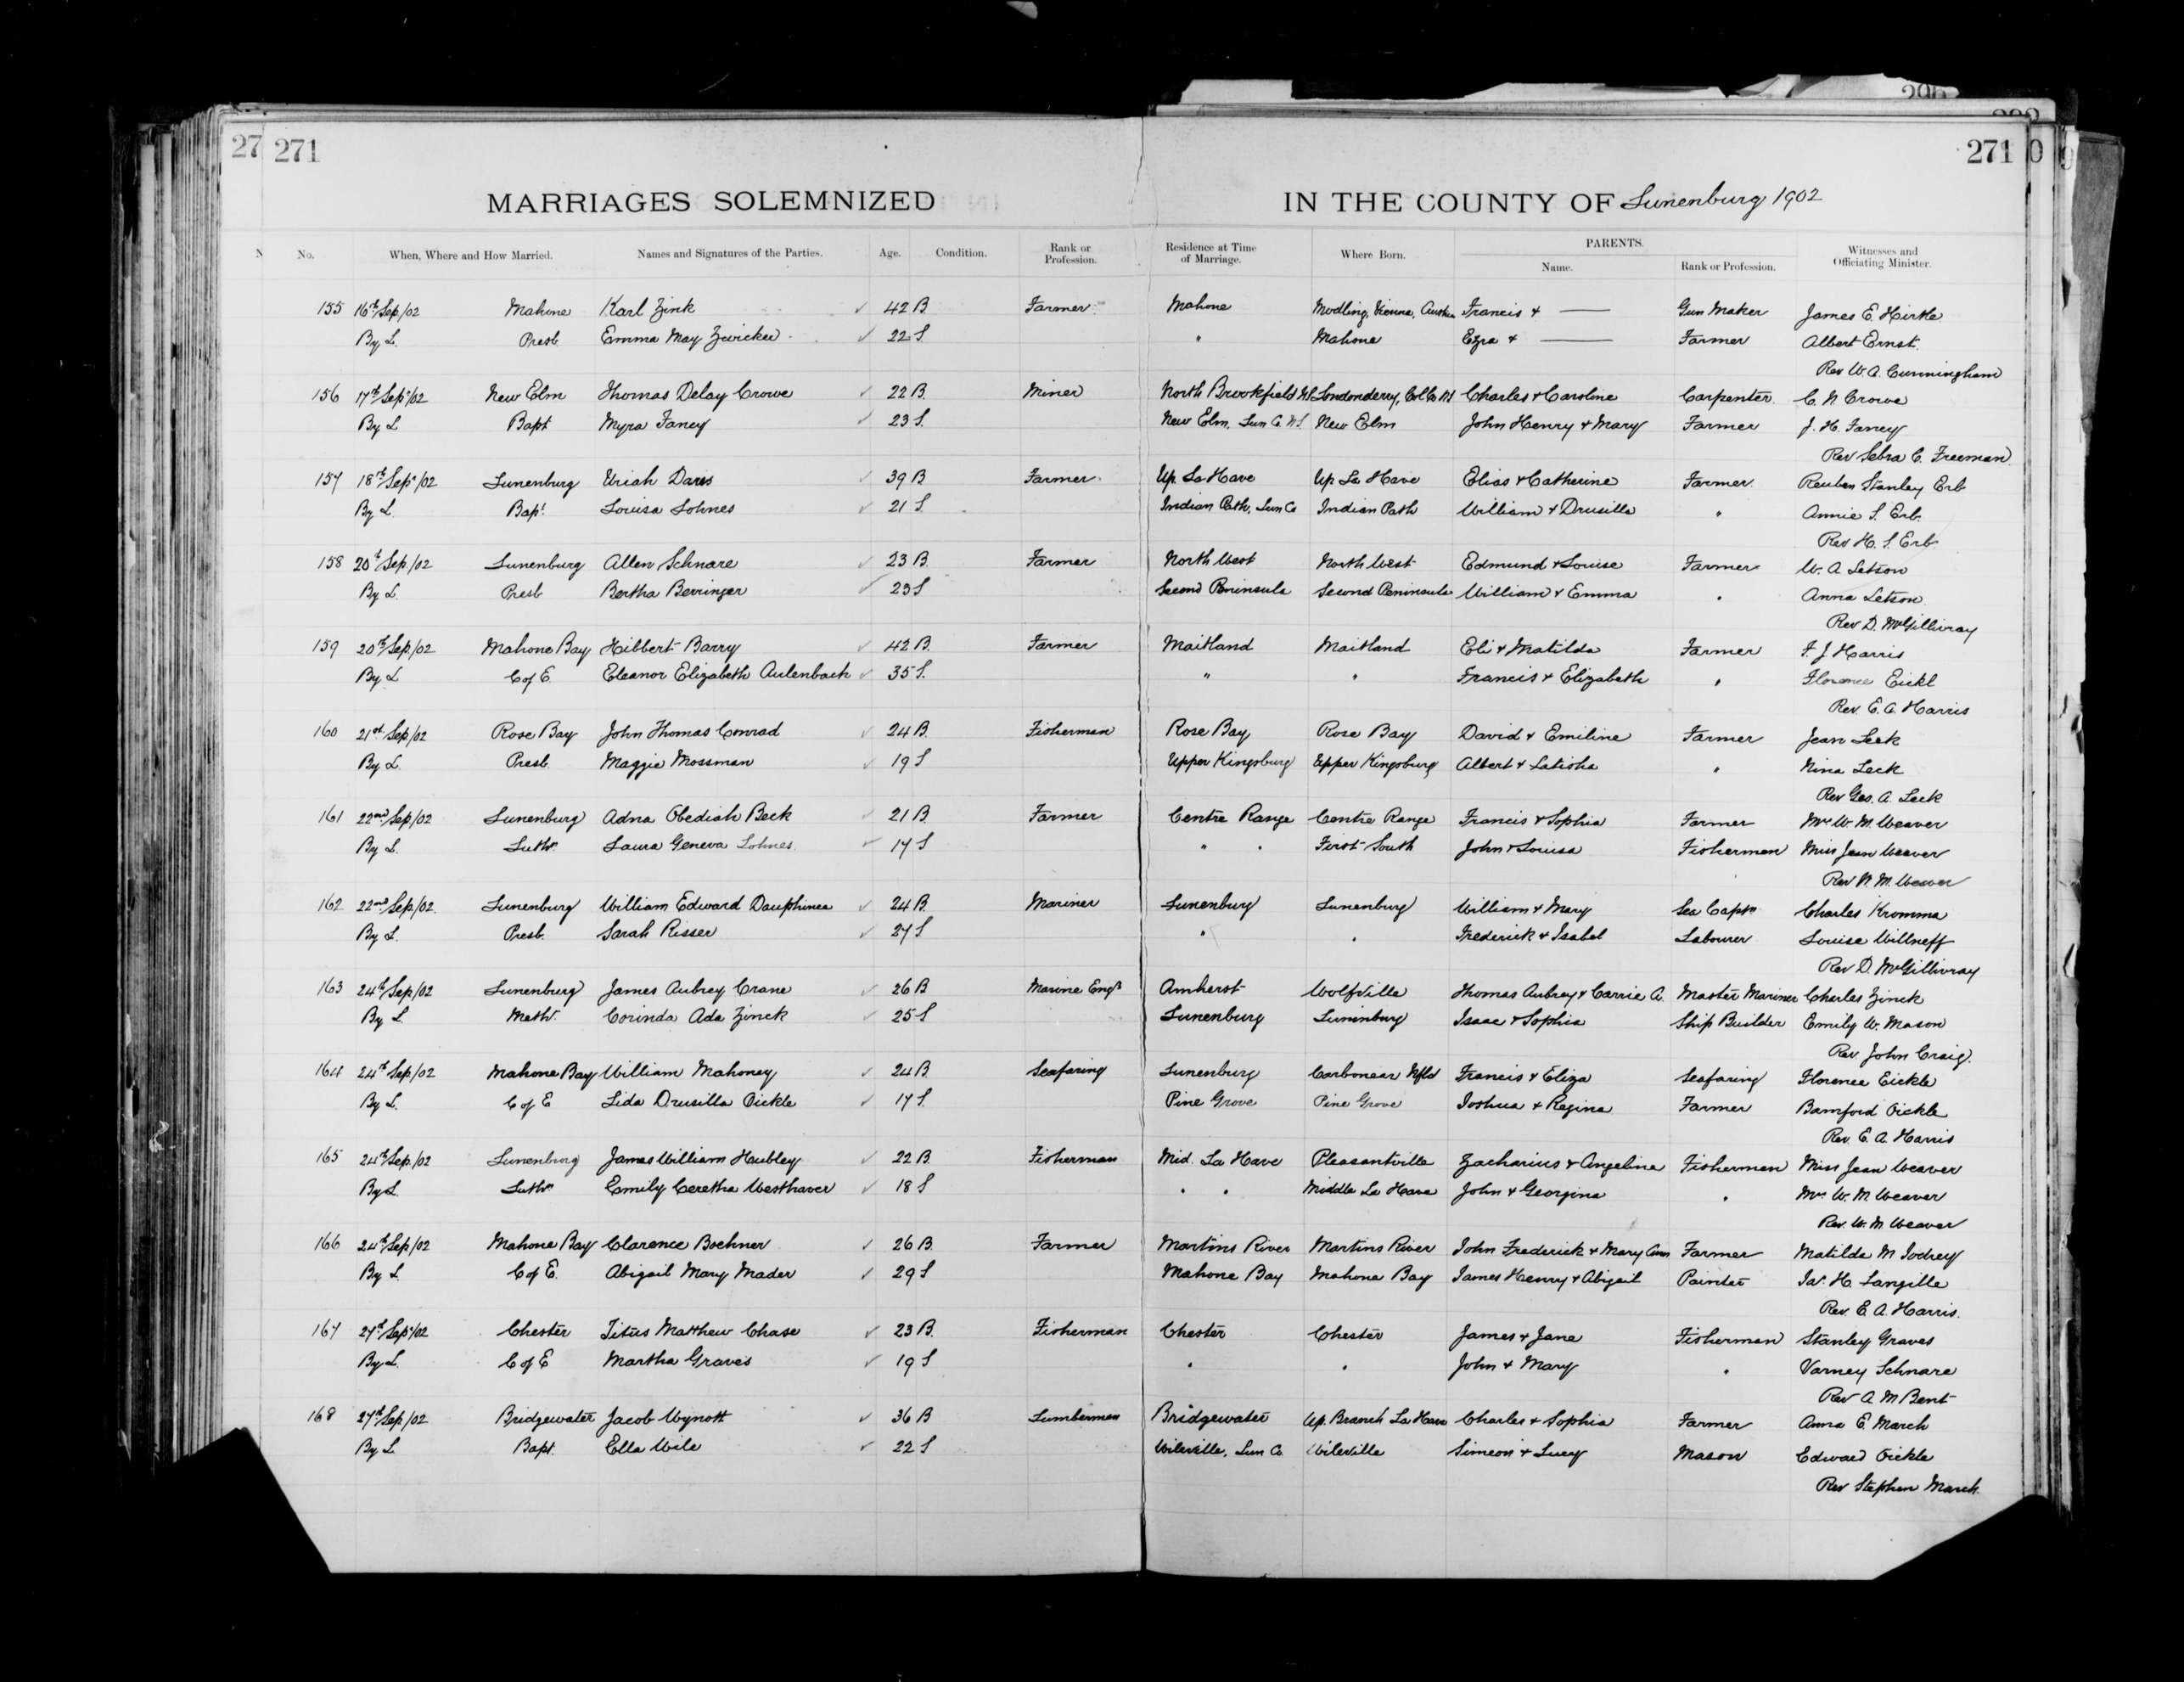 296
292
27 271
271 0
MARRIAGES SOLEMNIZED IN THE COUNTY OF Lunenburg 1902
No. When, Where and How Married. Names and Signatures of the Parties. Age. Condition. Rank or Profession. Residence at Time of Marriage. Where Born. PARENTS. Name. Rank or Profession. Witnesses and Officiating Minister.
155 16th Sep/02 Mahone Karl Zink ✓ 42 B Farmer Mahone Modling, Vienna, Austria Francis & —— Gun Maker James E. Hirtle
By L. Presb Emma May Zwicker ✓ 22 S " Mahone Ezra & —— Farmer Albert Ernst.
Rev W. A. Cunningham
156 17th Sep/02 New Elm Thomas Delay Crowe ✓ 22 B. Miner North Brookfield NS Londonderry, Col Co NS Charles & Caroline Carpenter. C. N Crowe
By L Bapt Myra Faney ✓ 23 S. New Elm, Lun Co. NS New Elm John Henry & Mary Farmer J. H. Faney
Rev Sebra C. Freeman
157 18th Sep/02 Lunenburg Uriah Dares ✓ 39 B Farmer Up La Have Up La Have Elias & Catherine Farmer Reuben Stanley Erb
By L. Bapt. Louisa Lohnes ✓ 21 S. Indian Path, Lun Co Indian Path William & Drusilla " Annie S. Erb.
Rev H. S. Erb
158 20th Sep/02 Lunenburg Allen Schnare ✓ 23 B. Farmer North West North West Edmund & Louise Farmer W. A Letson
By L. Presb Bertha Berringer ✓ 23 S Second Peninsula Second Peninsula William & Emma " Anna Letson
Rev D. McGillivray
159 20th Sep/02 Mahone Bay Hibbert Barry ✓ 42 B. Farmer Maitland Maitland Eli & Matilda Farmer F. J Harris
By L C of E. Eleanor Elizabeth Aulenback ✓ 35 S. " " Francis & Elizabeth " Florence Eickl
Rev. E. A. Harris
160 21st Sep/02 Rose Bay John Thomas Conrad ✓ 24 B. Fisherman Rose Bay Rose Bay David & Emiline Farmer Jean Leck
By L. Presb. Maggie Mossman ✓ 19 S Upper Kingsburg Upper Kingsburg Albert & Latisha " Nina Leck
Rev Geo. A. Leck
161 22nd Sep/02 Lunenburg Adna Obediah Beck ✓ 21 B. Farmer Centre Range Centre Range Francis & Sophia Farmer Mrs W. M. Weaver
By L. Luthn Laura Geneva Lohnes ✓ 17 S " " First South John & Louisa Fisherman Miss Jean Weaver
Rev W. M. Weaver
162 22nd Sep/02. Lunenburg William Edward Dauphinee ✓ 24 B. Mariner Lunenburg Lunenburg William & Mary Sea Captn Charles Kromma
By L. Presb. Sarah Risser ✓ 27 S " " Frederick & Isabel Labourer Louise Willneff
Rev D. McGillivray
163 24th Sep/02 Lunenburg James Aubrey Crane ✓ 26 B Marine Engr Amherst Wolfville Thomas Aubrey & Carrie A. Master Mariner Charles Zinck
By L Meth. Corinda Ada Zinck ✓ 25 S Lunenburg Lunenburg Isaac & Sophia Ship Builder Emily W. Mason
Rev John Craig.
164 24th Sep/02 Mahone Bay William Mahoney ✓ 24 B. Seafaring Lunenburg Carbonear Nfld Francis & Eliza Seafaring Florence Eickle
By L. C of E Lida Drusilla Oickle ✓ 17 S. Pine Grove Pine Grove Joshua & Regina Farmer Bamford Oickle
Rev. E. A Harris
165 24th Sep/02 Lunenburg James William Haubley ✓ 22 B. Fisherman Mid. La Have Pleasantville Zacharius & Angeline Fisherman Miss Jean Weaver
By L Luthn Emily Ceretha Westhaver ✓ 18 S " " Middle La Have John & Georgina " Mrs W. M Weaver
Rev. W. M Weaver
166 24th Sep/02 Mahone Bay Clarence Boehner ✓ 26 B. Farmer Martins River Martins River John Frederick & Mary Ann Farmer Matilda M Jodrey
By L C of E. Abigail Mary Mader ✓ 29 S Mahone Bay Mahone Bay James Henry & Abigail Painter Jas. H. Langille
Rev. E. A. Harris.
167 27th Sep/02 Chester Titus Matthew Chase ✓ 23 B. Fisherman Chester Chester James & Jane Fisherman Stanley Graves
By L. C of E Martha Graves ✓ 19 S " " John & Mary " Varney Schnare
Rev A. M Bent
168 27th Sep/02 Bridgewater Jacob Wynott ✓ 36 B Lumberman Bridgewater Up. Branch La Have Charles & Sophia Farmer Anna E. March
By L Bapt. Ella Wile ✓ 22 S Wileville, Lun Co. Wileville Simeon & Lucy Mason Edward Oickle
Rev Stephen March.